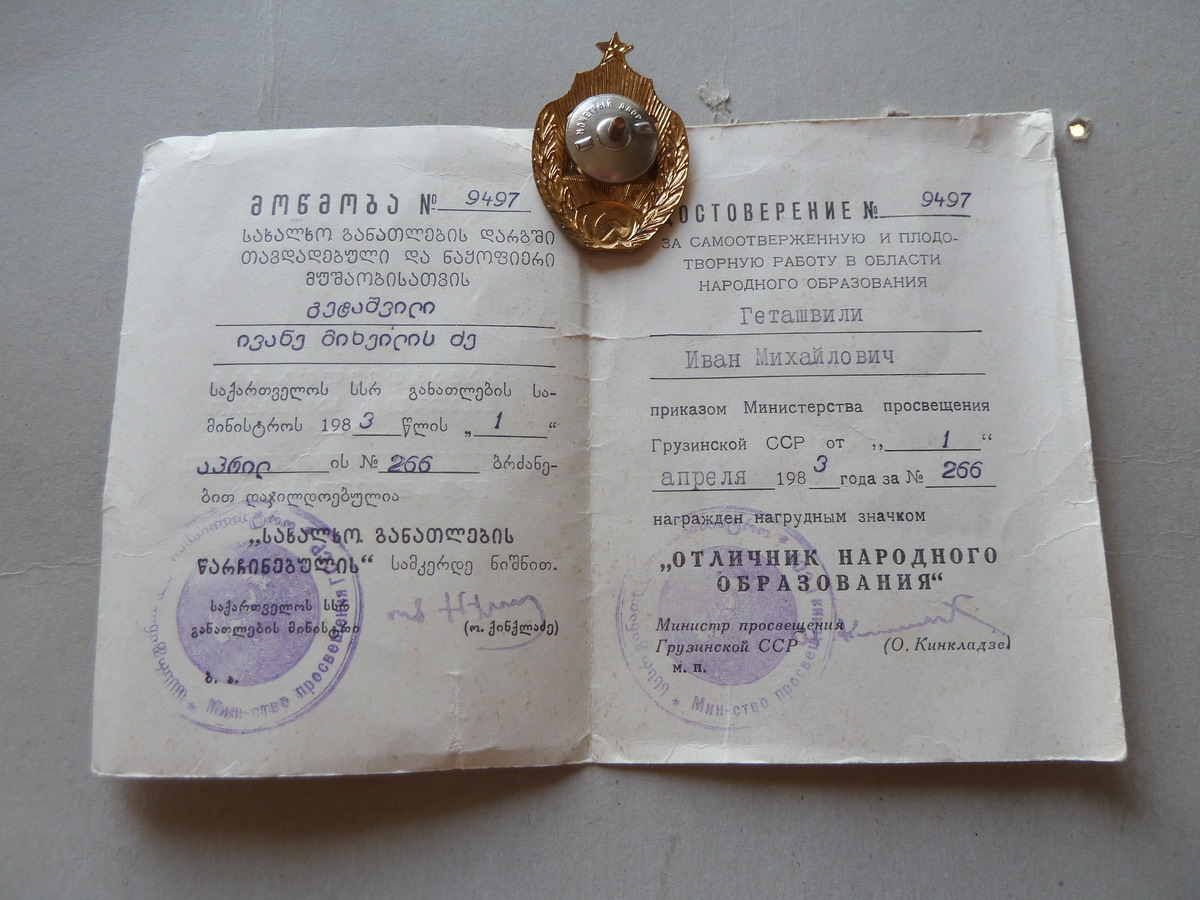 МОНЕТНЫЙ ДВОР
მოწმობა № 9497
სახალხო განათლების დარგში
თავდადებული და ნაყოფიერი
მუშაობისათვის
გეტაშვილი
ივანე მიხეილის ძე
საქართველოს სსრ განათლების სა-
მინისტროს 1983 წლის „1“
აპრილ ის № 266 ბრძანე-
ბით დაჯილდოებულია
„სახალხო განათლების
წარჩინებულის“ სამკერდე ნიშნით.
საქართველოს სსრ
განათლების მინისტრი (ო. ქინქლაძე)
ბ. ა.
Мин-ство просвещения
ОСТОВЕРЕНИЕ № 9497
ЗА САМООТВЕРЖЕННУЮ И ПЛОДО-
ТВОРНУЮ РАБОТУ В ОБЛАСТИ
НАРОДНОГО ОБРАЗОВАНИЯ
Геташвили
Иван Михайлович
приказом Министерства просвещения
Грузинской ССР от „1“
апреля 1983 года за № 266
награжден нагрудным значком
„ОТЛИЧНИК НАРОДНОГО
ОБРАЗОВАНИЯ“
Министр просвещения
Грузинской ССР (О. Кинкладзе)
м. п.
Мин-ство просвещения